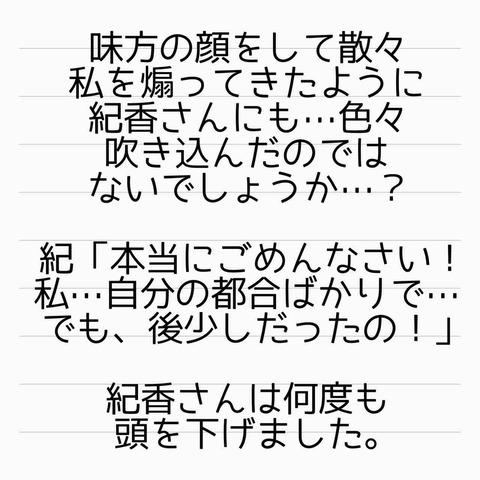 味方の顔をして散々
私を煽ってきたように
紀香さんにも…色々
吹き込んだのでは
ないでしょうか…？
紀「本当にごめんなさい！
私…自分の都合ばかりで…
でも、後少しだったの！」
紀香さんは何度も
頭を下げました。